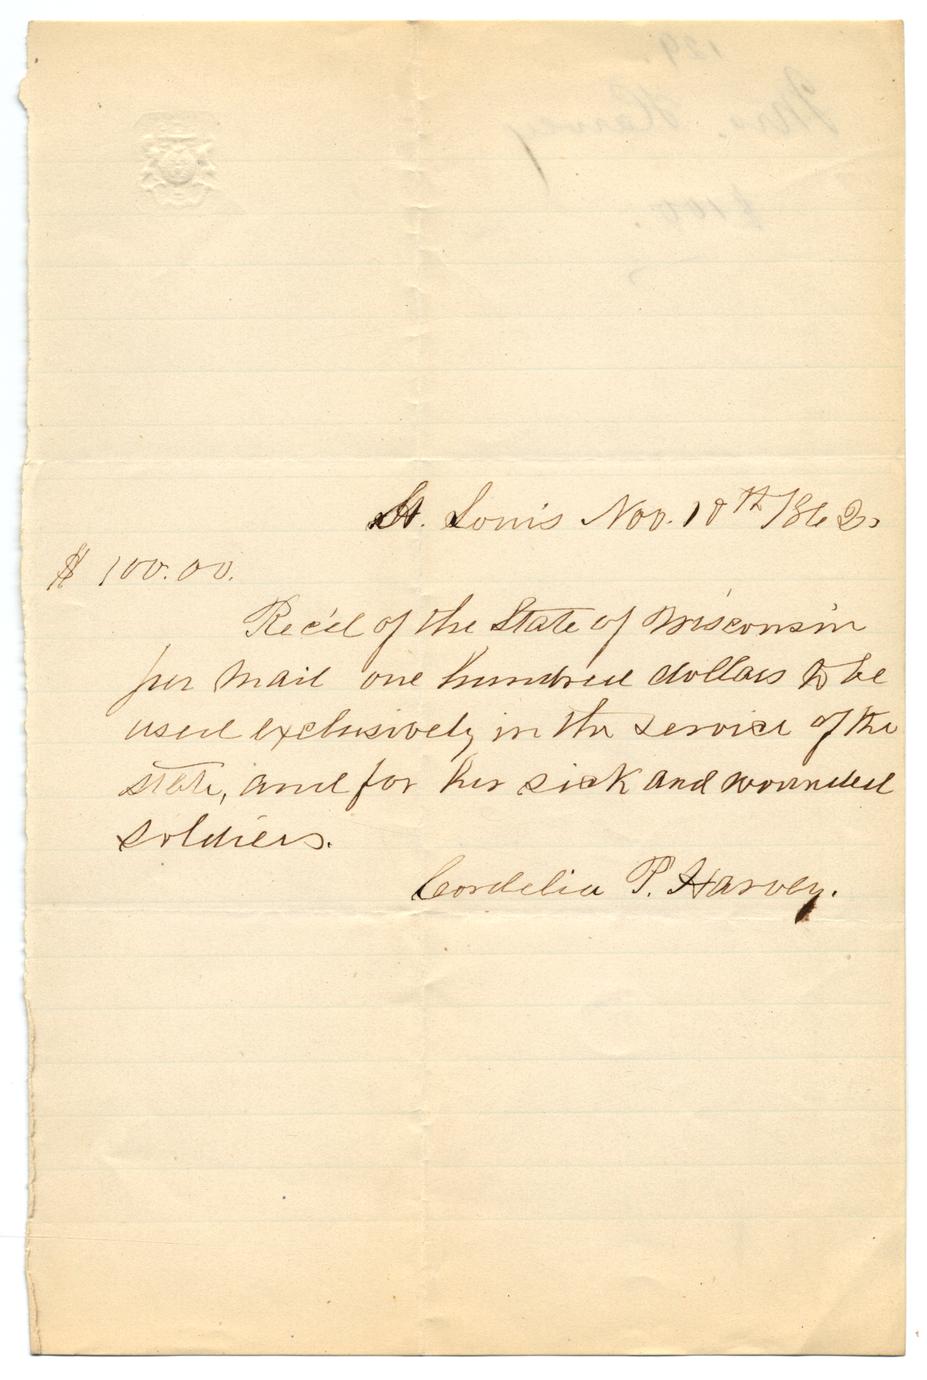 St. Louis Nov. 10th 1862.
$ 100.00.
Rec'd of the State of Wisconsin
per mail one hundred dollars to be
used exclusively in the service of the
state, and for her sick and wounded
soldiers.
Cordelia P. Harvey.
129.
Mrs. Harvey
$100.